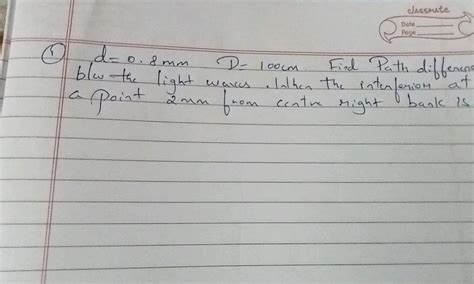 classmate
Date
Page
① d = 0.8mm D = 100cm Find Path differenc
b/w the light waves. When the interferion at
a point 2mm from centre right bank is